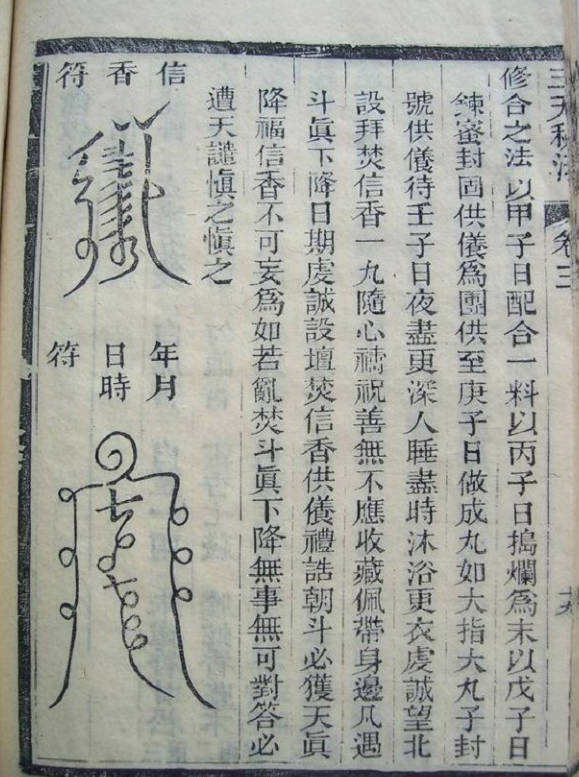 三天秘法 卷三
修合之法以甲子日配合一料以丙子日搗爛爲末以戊子日
鍊蜜封固供儀爲團供至庚子日做成丸如大指大丸子封
號供儀待壬子日夜盡更深人睡盡時沐浴更衣虔誠望北
設拜焚信香一丸隨心禱祝善無不應收藏佩帶身邊凡遇
斗眞下降日期虔誠設壇焚信香供儀禮誥朝斗必獲天眞
降福信香不可妄爲如若亂焚斗眞下降無事無可對答必
遭天譴慎之慎之
信香符
年月
日時
符